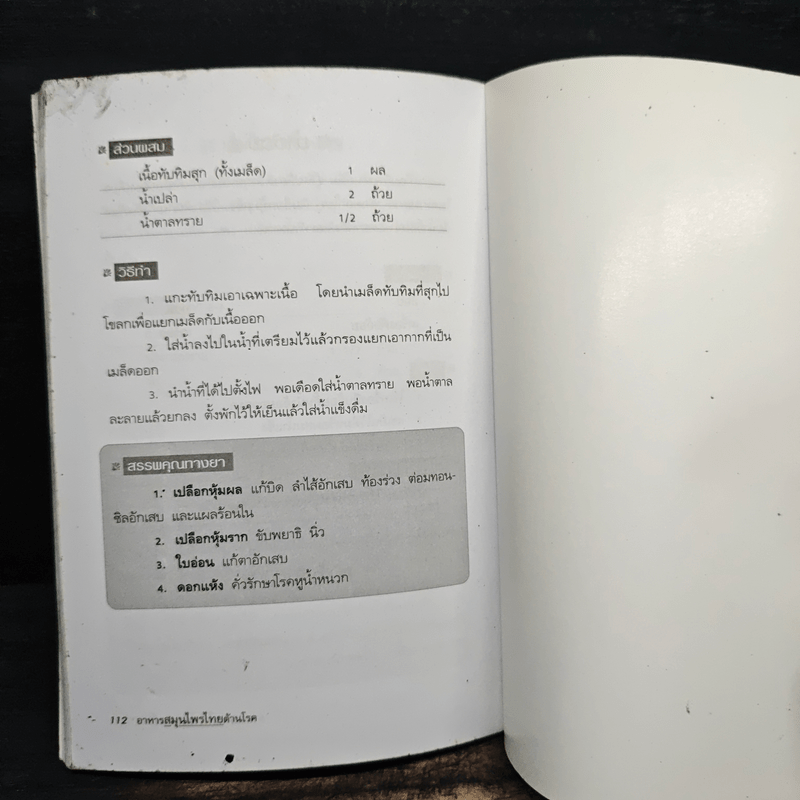 ส่วนผสม
เนื้อทับทิมสุก (ทั้งเมล็ด) 1 ผล
น้ำเปล่า 2 ถ้วย
น้ำตาลทราย 1/2 ถ้วย
วิธีทำ
1. แกะทับทิมเอาเฉพาะเนื้อ โดยนำเมล็ดทับทิมที่สุกไป
โขลกเพื่อแยกเมล็ดกับเนื้อออก
2. ใส่น้ำลงไปในน้ำที่เตรียมไว้แล้วกรองแยกเอากากที่เป็น
เมล็ดออก
3. นำน้ำที่ได้ไปตั้งไฟ พอเดือดใส่น้ำตาลทราย พอน้ำตาล
ละลายแล้วยกลง ตั้งพักไว้ให้เย็นแล้วใส่น้ำแข็งดื่ม
สรรพคุณทางยา
1. เปลือกหุ้มผล แก้บิด ลำไส้อักเสบ ท้องร่วง ต่อมทอน-
ซิลอักเสบ และแผลร้อนใน
2. เปลือกหุ้มราก ขับพยาธิ นิ่ว
3. ใบอ่อน แก้ตาอักเสบ
4. ดอกแห้ง คั่วรักษาโรคหูน้ำหนวก
112 อาหารสมุนไพรไทยต้านโรค